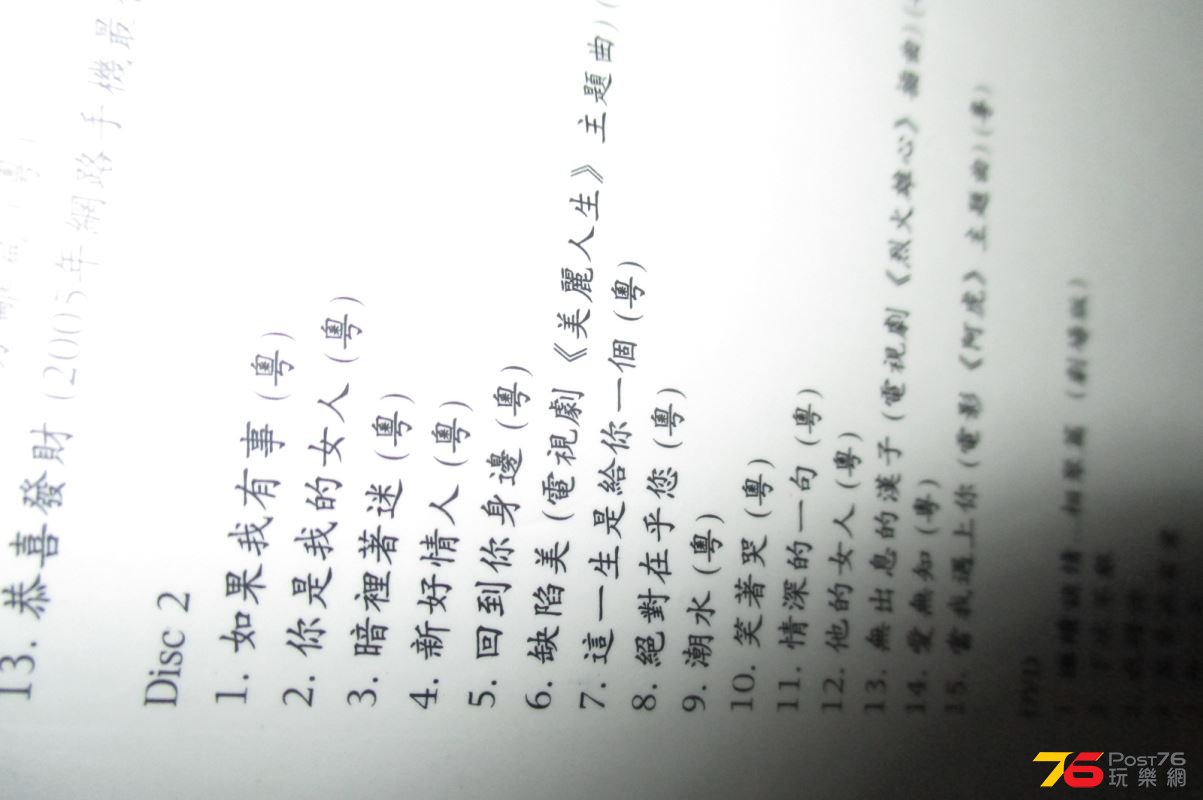 (粵)
13. 恭喜發財 (2005年網路手機最
Disc 2
1. 如果我有事 (粵)
2. 你是我的女人 (粵)
3. 暗裡著迷 (粵)
4. 新好情人 (粵)
5. 回到你身邊 (粵)
6. 缺陷美 (電視劇《美麗人生》主題曲)(
7. 這一生是給你一個 (粵)
8. 絕對在乎您 (粵)
9. 潮水 (粵)
10. 笑著哭 (粵)
11. 情深的一句 (粵)
12. 他的女人 (粵)
13. 無出息的漢子 (電視劇《烈火雄心》插曲)(
14. 愛無知 (粵)
15. 當我遇上你 (電影《阿虎》主題曲)(粵)
DVD
76 Post76
玩樂網